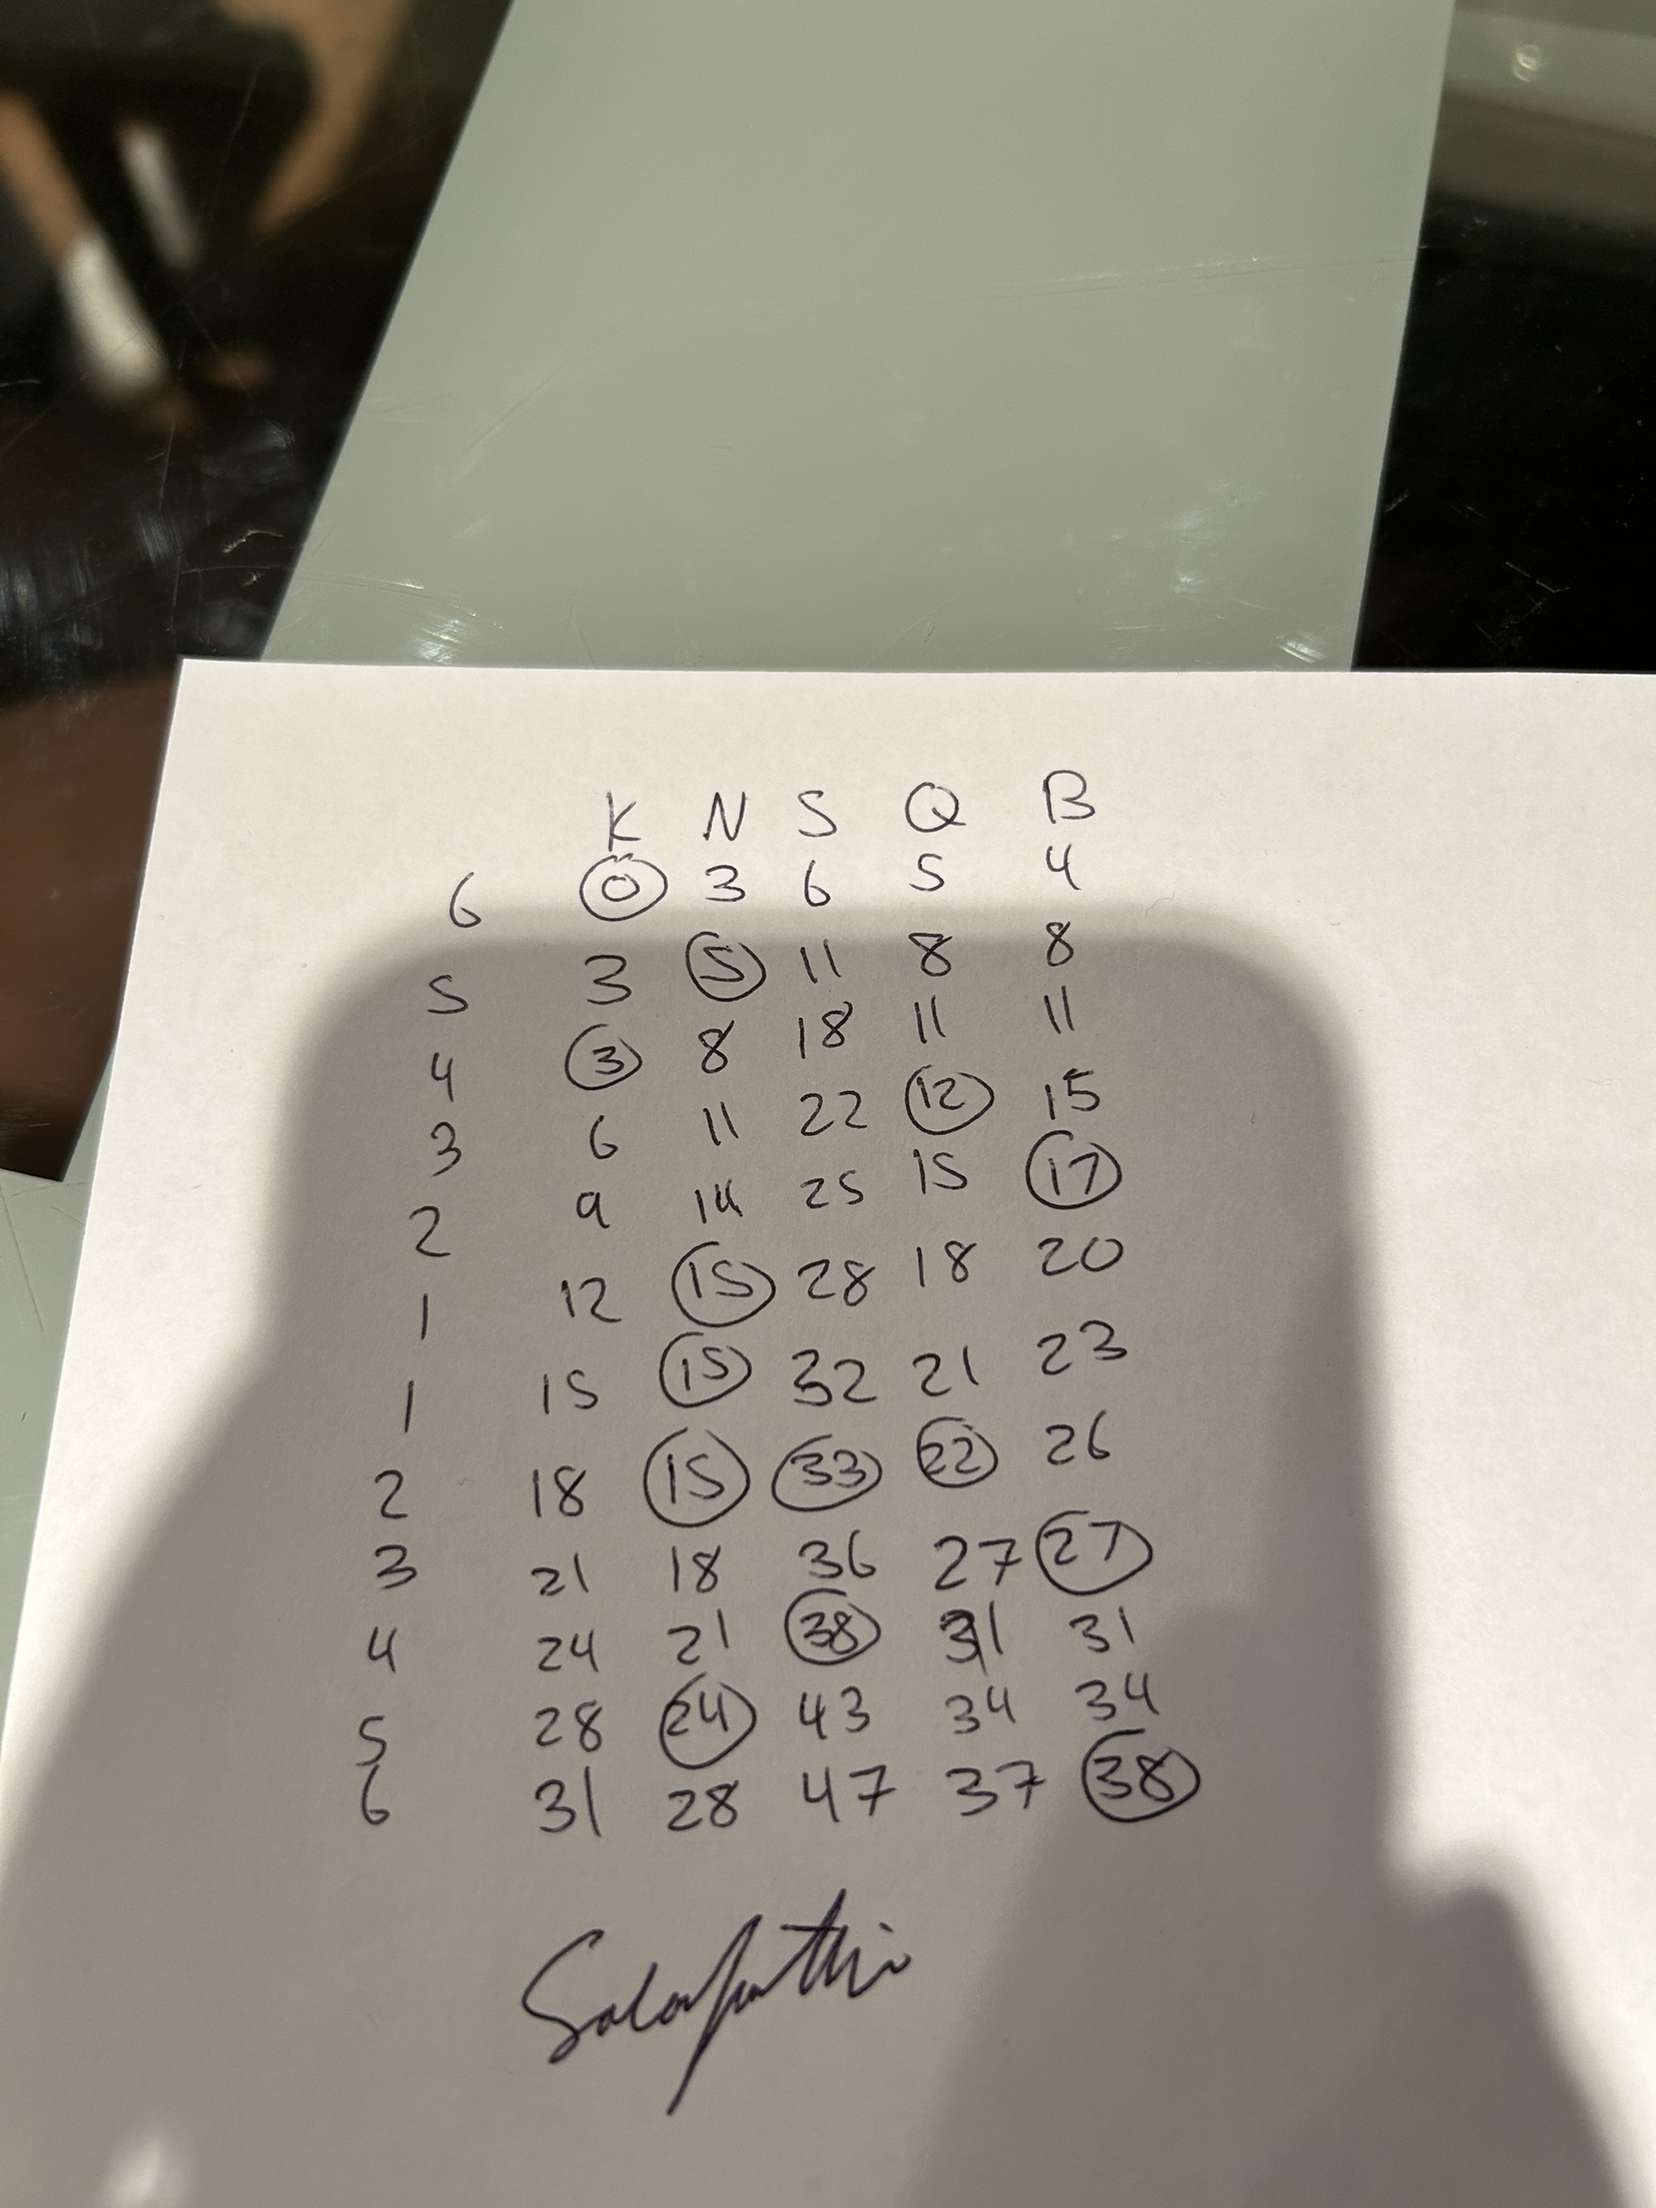 K N S Q B
6 0 3 6 5 4
5 3 5 11 8 8
4 3 8 18 11 11
3 6 11 22 12 15
2 9 14 25 15 17
1 12 15 28 18 20
1 15 15 32 21 23
2 18 15 33 22 26
3 21 18 36 27 27
4 24 21 38 31 31
5 28 24 43 34 34
6 31 28 47 37 38